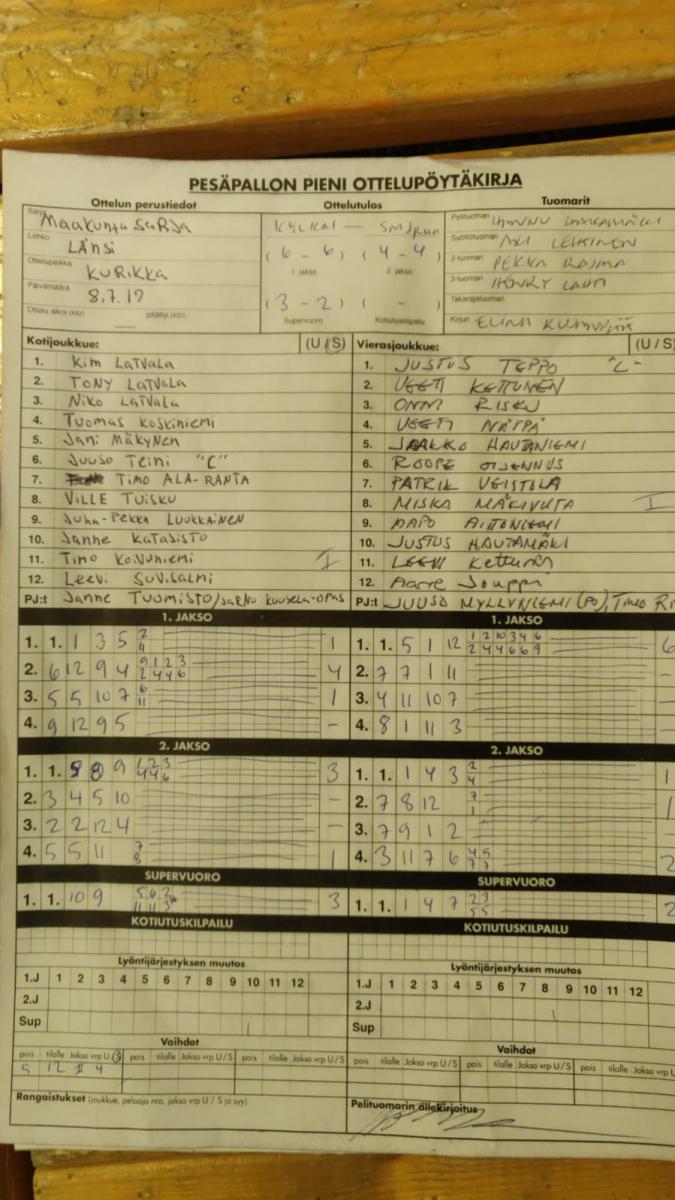 PESÄPALLON PIENI OTTELUPÖYTÄKIRJA
Ottelun perustiedot
Sarja Maakuntasarja
Lohko LÄNSI
Ottelupaikka KURIKKA
Päivämäärä
Ottelu alkoi (klo) päättyi (klo)
Ottelutulos
(6 - 6) (4 - 4)
1. jakso 2. jakso
(3 - 2) ( - )
Supervuoro Kotiutuskilpailu
Tuomarit
Pelituomari
Syöttötuomari
2-tuomari PEKKA
3-tuomari HENRY
Takarajatuomari
Kirjuri ELINA
Kotijoukkue: (U / S)
1. Kim LATVALA
2. TONY LATVALA
3. NIKO LATVALA
4. TUOMAS KOSKINIEMI
5. Jani MÄKYNEN
6. JUUSO TEINI "C"
7. TIMO ALA-RANTA
8. VILLE TUISKU
9. JUHA-PEKKA LUUKKAINEN
10. JANNE KATAJISTO
11. TIMO KOIVUNIEMI I
12. LEEVI
PJ:t JANNE TUOMISTO/JARNO KUUSELA-OPAS
Vierasjoukkue: (U / S)
1. JUSTUS TEPPO "C"
2. VEETI KETTUNEN
3. ONNI RISKU
4. VEETI NÄPPÄ
5. JAAKKO HAUTANIEMI
6. ROOPE
7. PATRIK
8. MISKA I
9. AAPO
10. JUSTUS HAUTAMÄKI
11. LEEVI Kettunen
12. Aarre Jouppi
PJ:t JUUSO MYLLYNIEMI (PO), TIMO
1. JAKSO
1. 1. 1 3 5 2 11 1
2. 6 12 9 4 9 1 2 3 2 4 4 6 4
3. 5 5 10 7 6 11 1
4. 9 12 9 5 -
1. JAKSO
1. 1. 5 1 12 1 2 10 3 4 6 2 4 4 6 6 9 6
2. 7 7 1 11 -
3. 4 11 10 7 -
4. 8 1 11 3 -
2. JAKSO
1. 1. 8 9 1 2 3 4 4 6 3
2. 3 4 5 10 -
3. 2 2 12 4 -
4. 5 5 11 7 8 1
2. JAKSO
1. 1. 1 4 3 2 4 1
2. 7 8 12 7 1 1
3. 7 9 1 2 -
4. 3 11 7 6 4 5 7 7 2
SUPERVUORO
1. 1. 10 9 5 6 2 11 11 3
SUPERVUORO
1. 1. 1 4 7 2 3 5 5 2
KOTIUTUSKILPAILU
KOTIUTUSKILPAILU
Lyöntijärjestyksen muutos
1.J 1 2 3 4 5 6 7 8 9 10 11 12
2.J
Sup
Lyöntijärjestyksen muutos
1.J 1 2 3 4 5 6 7 8 9 10 11 12
2.J
Sup
Vaihdot
pois tilalle Jakso vrp U/S pois tilalle Jakso vrp U / S pois tilalle Jakso vrp U / S
5 12 4
Vaihdot
pois tilalle Jakso vrp U / S pois tilalle Jakso vrp U / S pois tilalle Jakso vrp U
Rangaistukset (joukkue, pelaaja nro, jakso vrp U / S ja syy)
Pelituomarin allekirjoitus